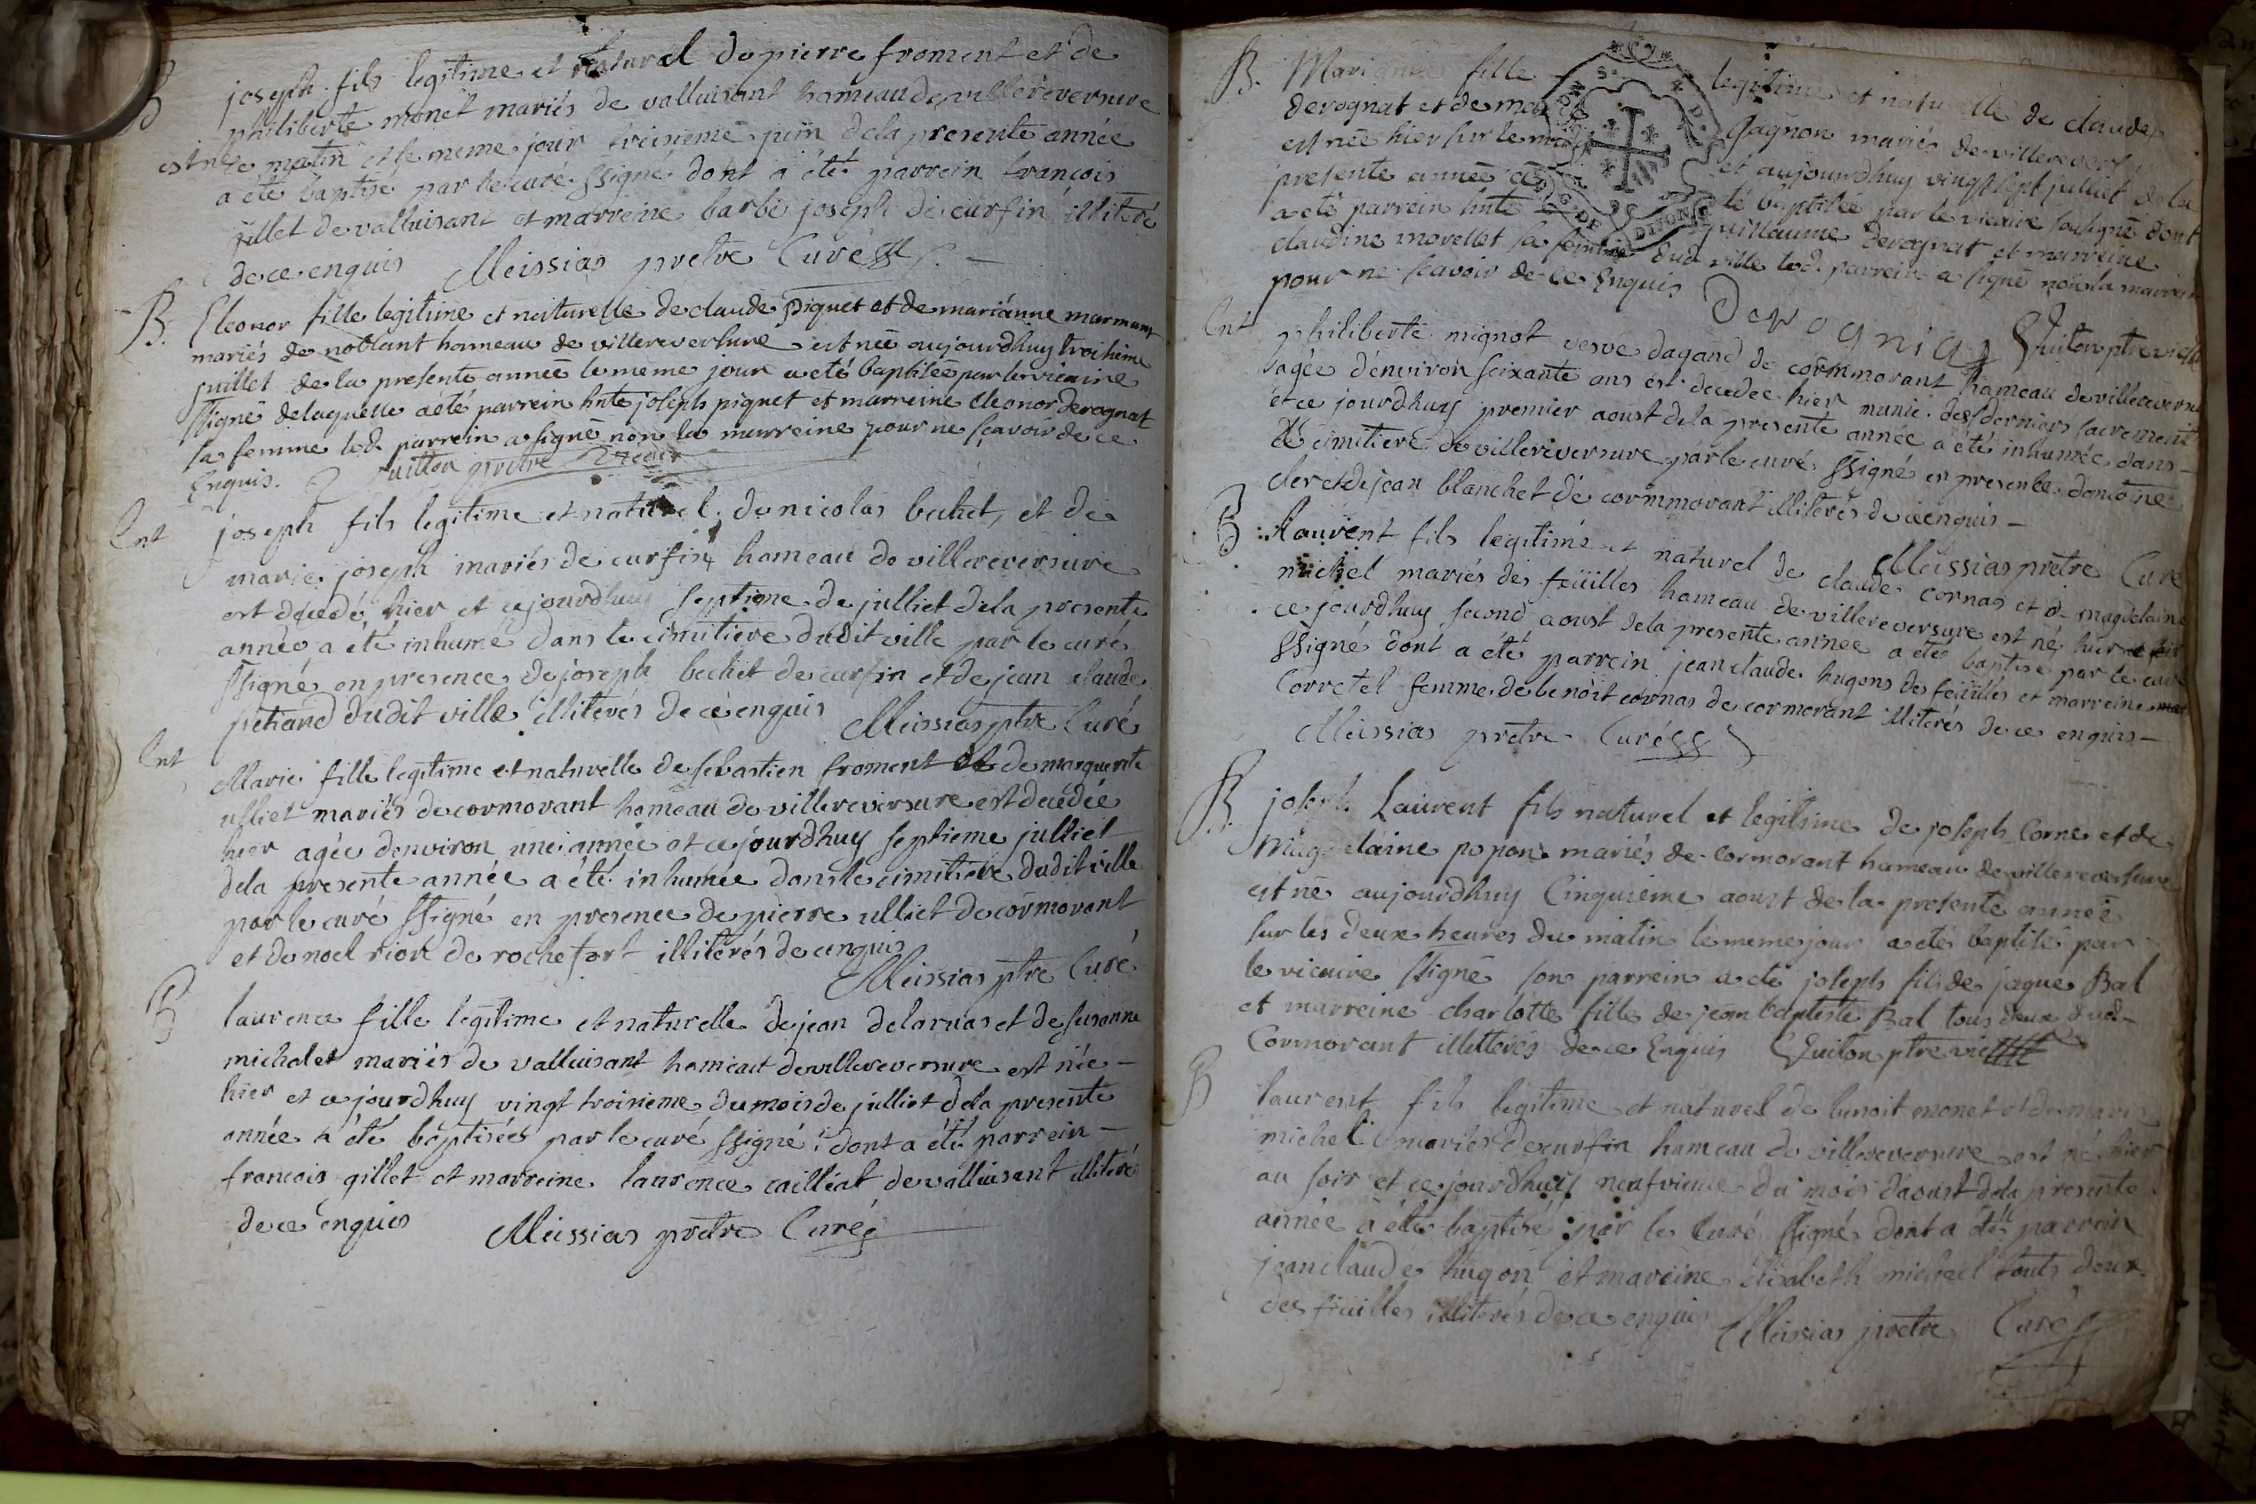 B joseph fils legitime et naturel de pierre froment et de
philiberte monet mariés de valluisant hameau de villereversure
est né le matin et le meme jour troisieme juin de la presente année
a été baptisé par le curé ssigné dont a été parrein francois
gillet de valluisant et marreine barbe joseph de curfin illiteré
de ce enquis Meissias pretre Curé
B. Eleonor fille legitime et naturelle de claude piquet et de marianne marmant
mariés de noblant hameau de villereversure est née aujourdhuy troisieme
juillet de la presente année le meme jour a eté baptisée par le vicaire
ssigné de laquelle a été parrein hnte joseph piquet et marreine eleonor derognat
sa femme led. parrein a signé non la marreine pour ne sçavoir de ce
Enquis. Guitton pretre vicaire
Ent joseph fils legitime et naturel de nicolas bechet, et de
marie joseph mariés de curfin hameau de villereversure
est decedé hier et cejourdhuy septieme de julliet dela presente
année a été inhumé dans le cimitiere dudit ville par le curé
ssigné en presence de joseph bechet de curfin et de jean claude
petiand dudit ville illiterés de ce enquis Meissias ptre Curé
Ent Marie fille legitime et naturelle de sebastien froment et de marguerite
ulliet mariés de cormorant hameau de villereversure est decedée
hier agée denviron une année et cejourdhuy septieme julliet
dela presente année a été inhumée dans le cimitiere dudit ville
par le curé ssigné en presence de pierre ulliet de cormorant
et de noel rion de rochefort illiterés de ce enquis
Meissias ptre Curé
B laurence fille legitime et naturelle de jean delarnas et de susanne
michalet mariés de valluisant hameau de villereversure est née
hier et cejourdhuy vingt troisieme du mois de julliet dela presente
année a été baptisée par le curé ssigné dont a été parrein
francois gillet et marreine laurence cailliat de valluisant illiterés
de ce enquis Meissias pretre Curé
B. Marianne fille legitime et naturelle de claude
derognat et de Gagnon mariés de villereversure
est née hier sur le et aujourdhuy vingt sept julliet de la
presente année a été baptisée par le vicaire sousigné dont
a eté parrein hnte guillaume derognat et marreine
claudine morellet sa femme dud ville led. parrein a signé non la marreine
pour ne scavoir de ce Enquis Derognat Guiton ptre vic
Ent philiberte mignot veuve dagand de cormmorant hameau de villereversure
agée d'environ soixante ans est decedée hier munie des derniers sacrements
et ce jourdhuy premier aoust de la presente année a été inhumée dans
le cimitiere de villereversure par le curé ssigné en presence
et de jean blanchet de cormmorant illiterés de ce enquis
Meissias pretre Curé
B laurent fils legitime et naturel de claude cornas et de magdelaine
michel mariés des feüilles hameau de villereversure est né hier
ce jourdhuy second aoust dela presente annee a été baptisé par le curé
ssigné dont a été parrein jean claude hugons des feüilles et marreine
Corretel femme de benoit cornas de cormorant illiterés de ce enquis
Meissias pretre Curé
B. joseph Laurent fils naturel et legitime de joseph Corne et de
Magdelaine popon mariés de Cormorant hameau de villereversure
est né aujourdhuy Cinquieme aoust de la presente année
sur les deux heures du matin le meme jour a été baptisé par
le vicaire ssigné son parrein a eté joseph fils de jaque Bal
et marreine charlotte fille de jean baptiste Bal tous deux dud
Cormorant illiterés de ce Enquis Guiton ptre vic
B laurent fils legitime et naturel de benoit monet et de marie
michel mariés de curfin hameau de villereversure est né hier
au soir et ce jourdhuy neufvieme du mois d'aoust dela presente
année a été baptisé par le Curé ssigné dont a été parrein
jean claude hugon et mareine elisabeth michel touts deux
des feuilles illiterés de ce enquis Meissias pretre Curé